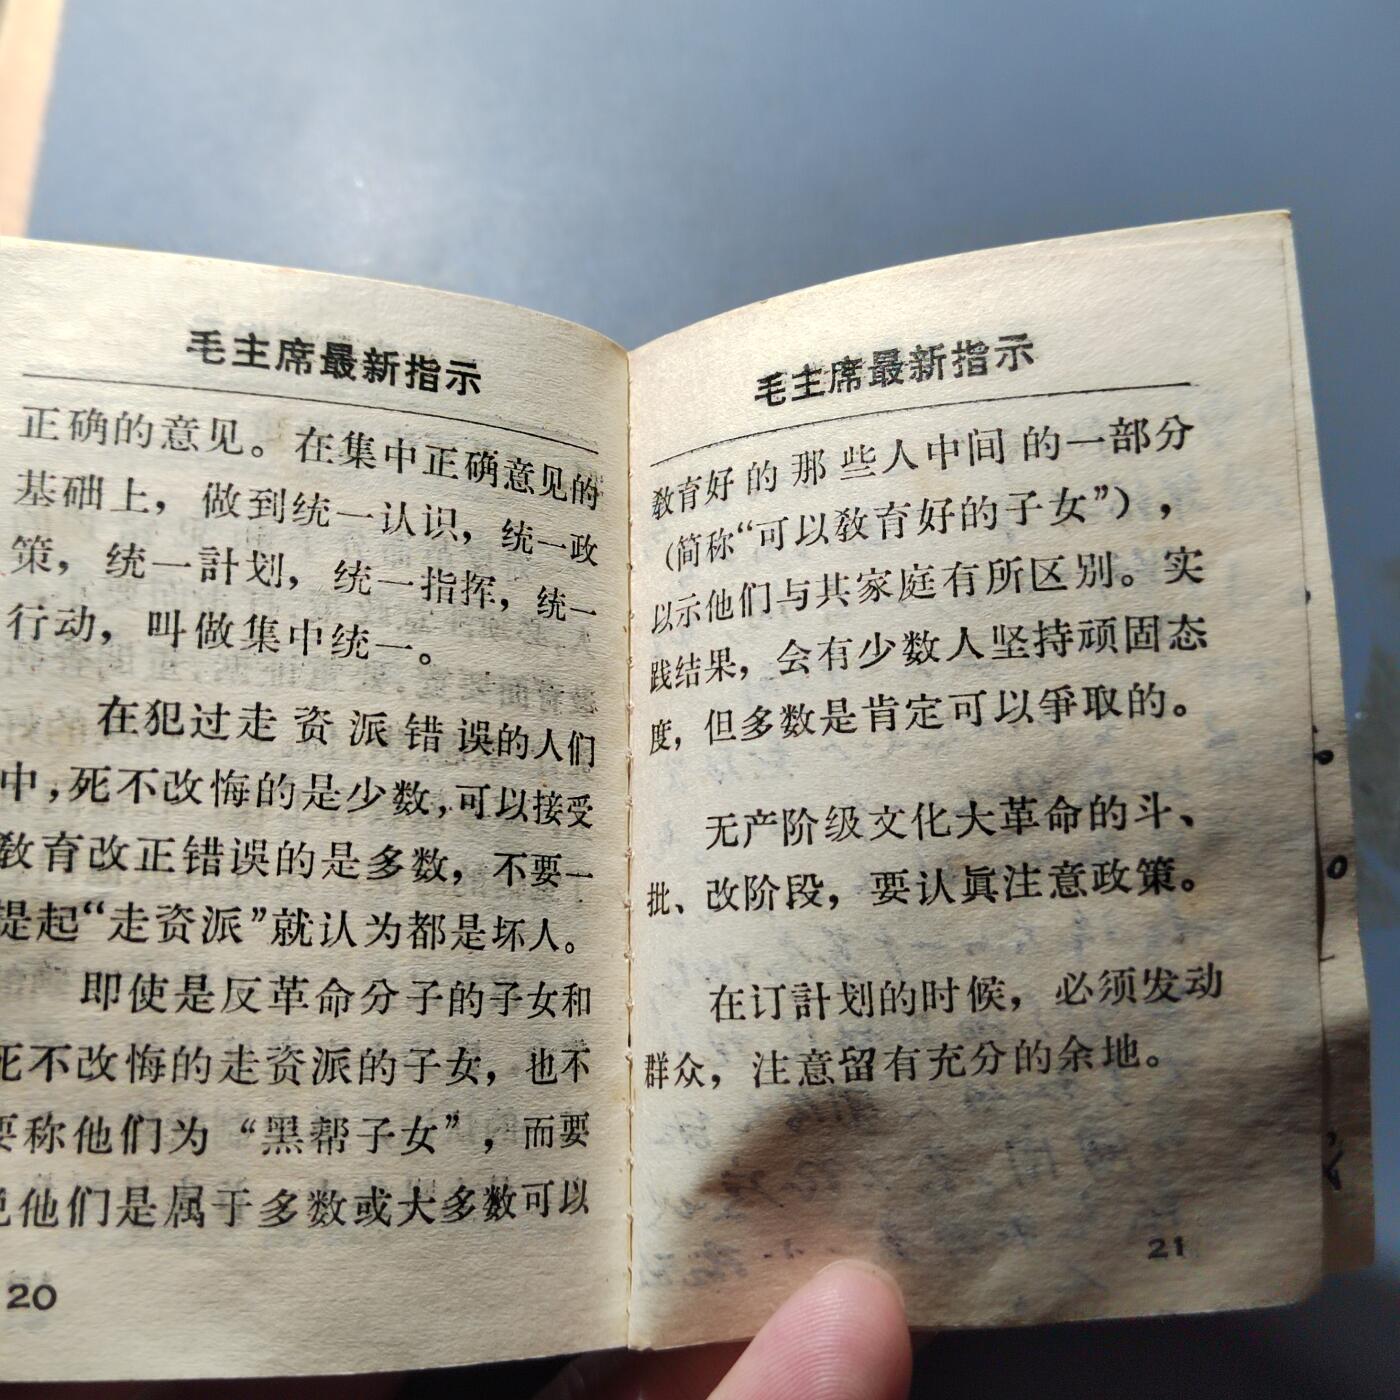 毛主席最新指示
正确的意见。在集中正确意见的
基础上，做到统一认识，统一政
策，统一計划，统一指挥，统一
行动，叫做集中统一。
在犯过走资派错误的人们
中，死不改悔的是少数，可以接受
敎育改正错误的是多数，不要一
提起“走资派”就认为都是坏人。
即使是反革命分子的子女和
死不改悔的走资派的子女，也不
要称他们为“黑帮子女”，而要
说他们是属于多数或大多数可以
20
毛主席最新指示
敎育好的那些人中间的一部分
（简称“可以敎育好的子女”），
以示他们与其家庭有所区别。实
践结果，会有少数人坚持顽固态
度，但多数是肯定可以爭取的。
无产阶级文化大革命的斗、
批、改阶段，要认眞注意政策。
在订計划的时候，必须发动
群众，注意留有充分的余地。
21